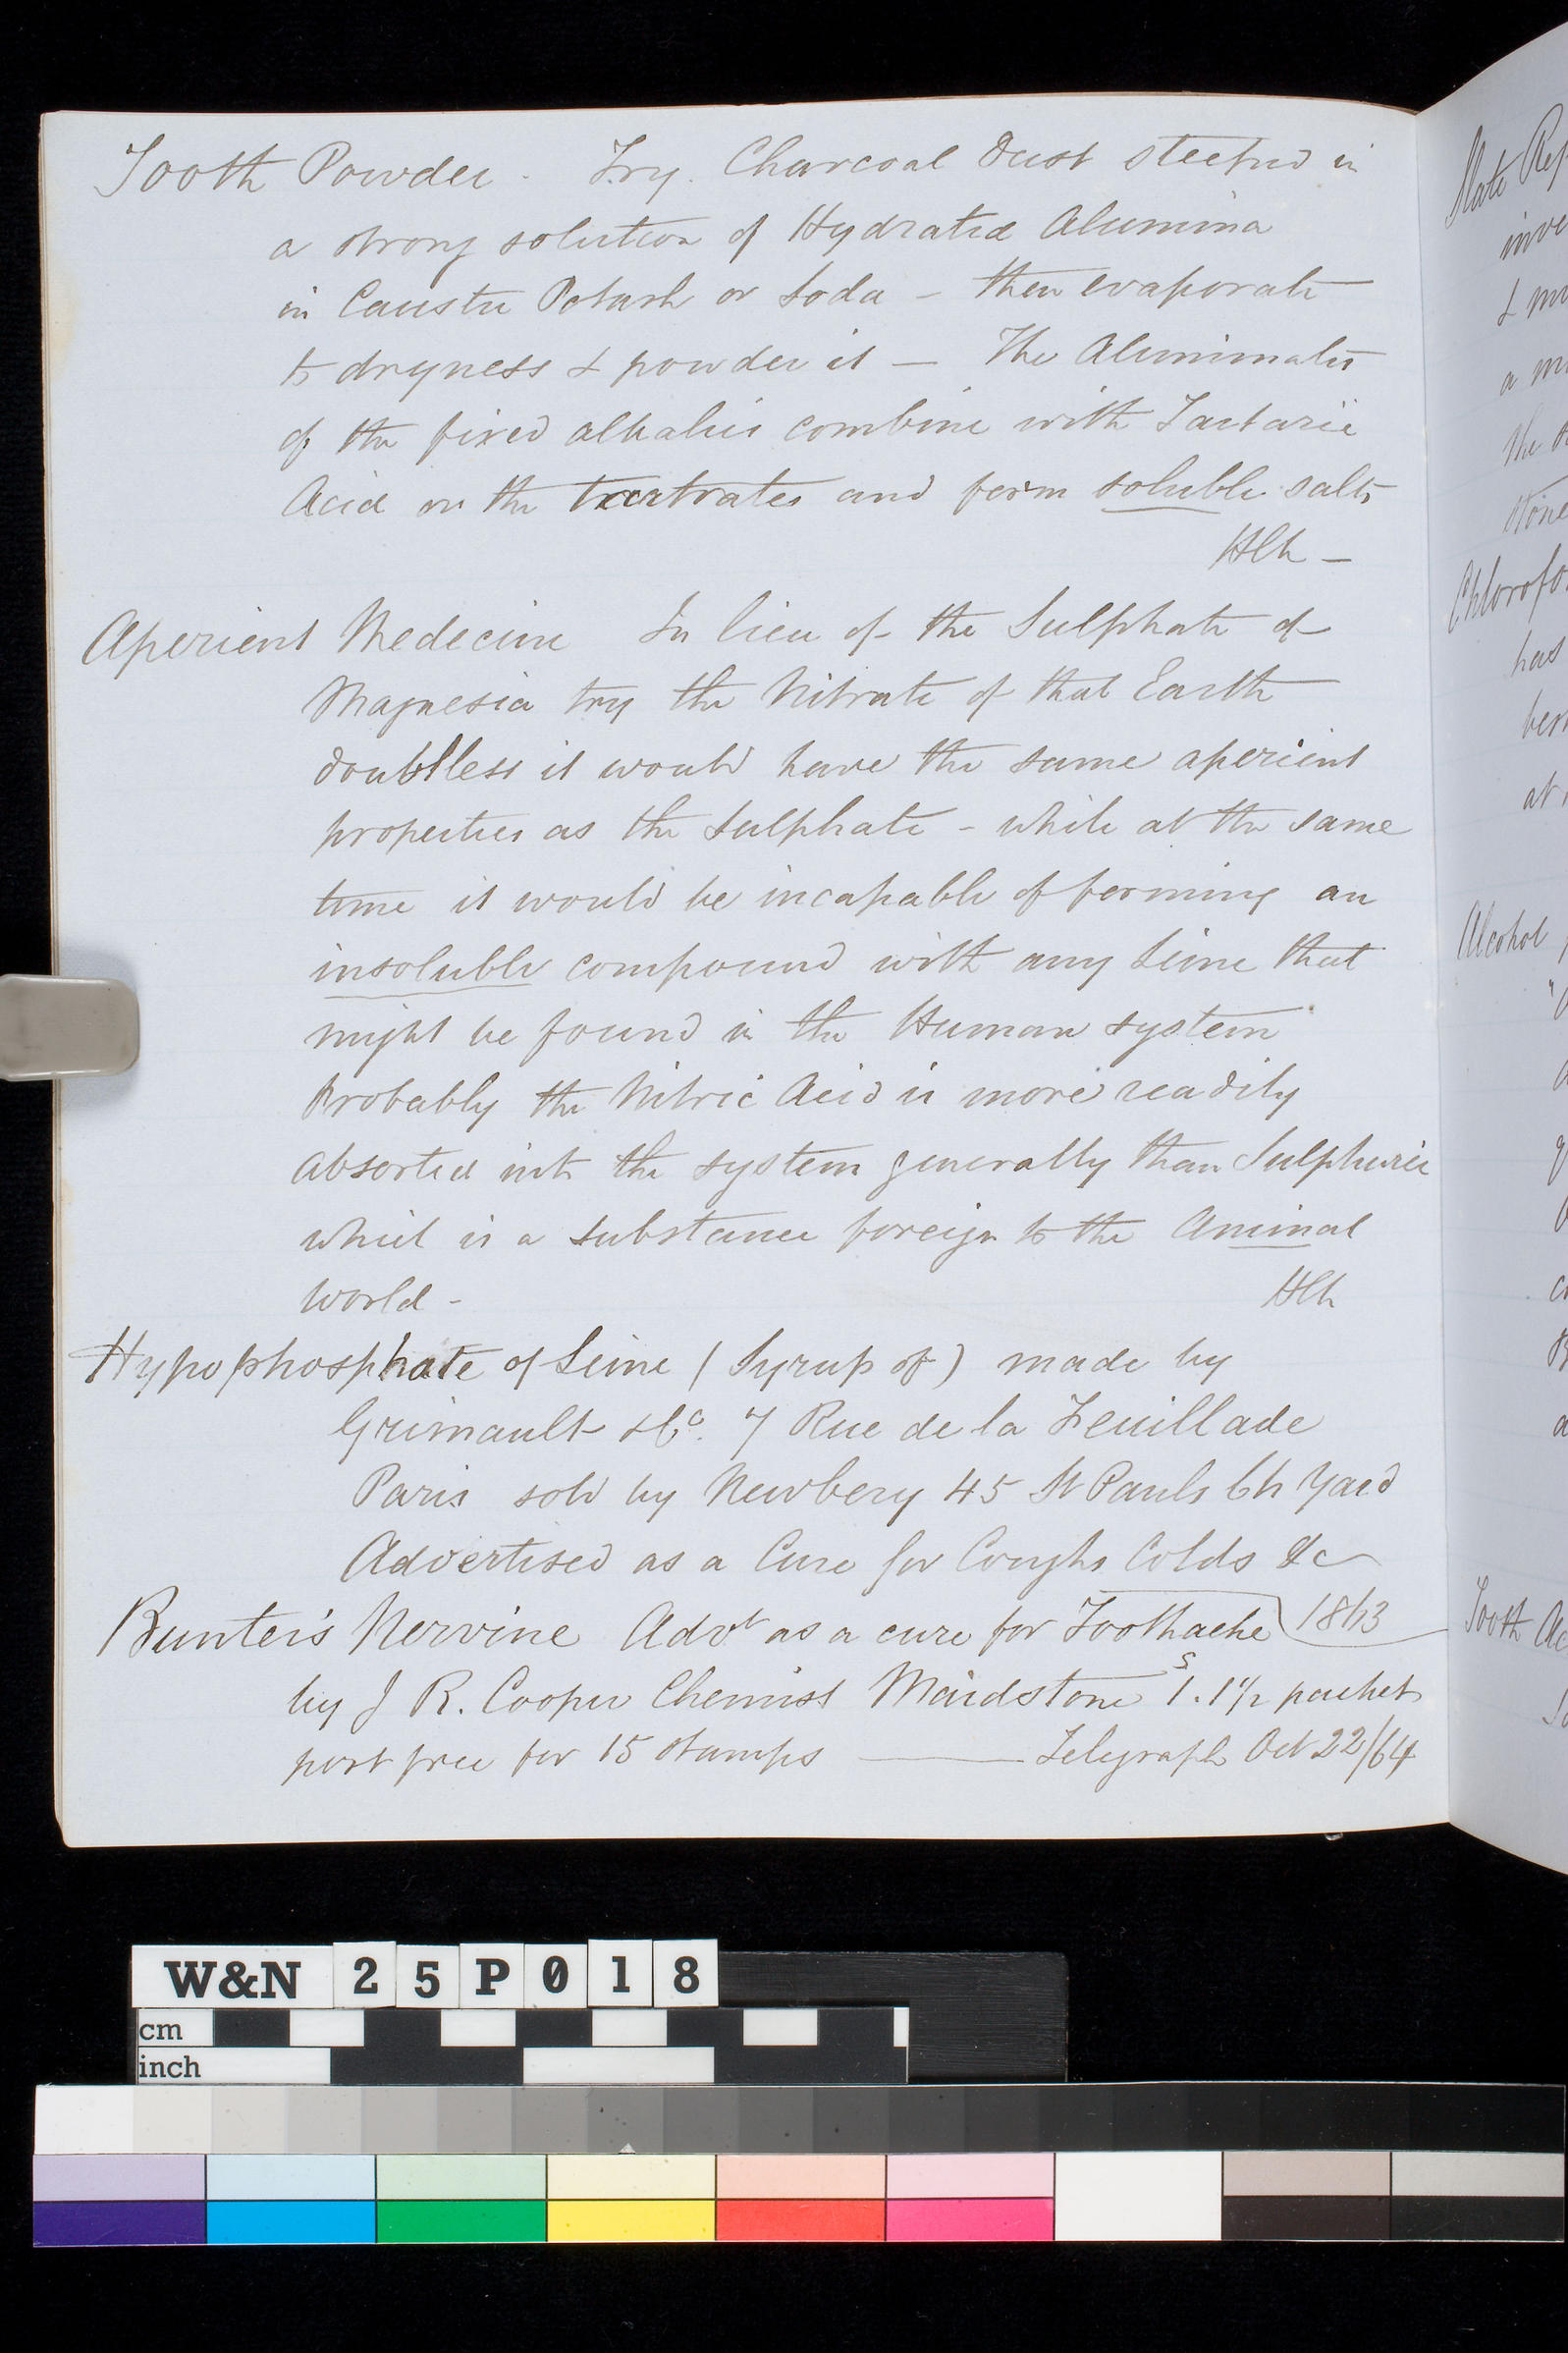 Tooth Powder. Try. Charcoal Dust steeped in
a strong solution of Hydrated Alumina
in Caustic Potash or Soda – then evaporate
to dryness & powder it – The Aluminates
of the fixed alkalies combine with Tartaric
Acid or the tartrates and form soluble salts
Aperient Medecine In lieu of the Sulphate of
Magnesia try the Nitrate of that Earth
doubtless it would have the same aperient
properties as the Sulphate – while at the same
time it would be incapable of forming an
insoluble compound with any Lime that
might be found in the Human system
Probably the Nitric Acid is more readily
absorbed into the system generally than Sulphuric
which is a substance foreign to the Animal
World –
Hypophosphate of Lime (Syrup of) made by
Grimault & Co. 7 Rue de la Feuillade
Paris sold by Newbery 45 St Pauls Ch Yard
Advertised as a Cure for Coughs Colds &c
1863
Bunter's Nervine Advt as a cure for Toothache
by J R. Cooper Chemist Maidstone 1s.1½ packet
post free for 15 stamps — Telegraph Oct 22/64
Slate
inve
a
the
Stone
Chlorofo
has
at
Alcohol
Tooth Ac
W&N 25P018
cm
inch